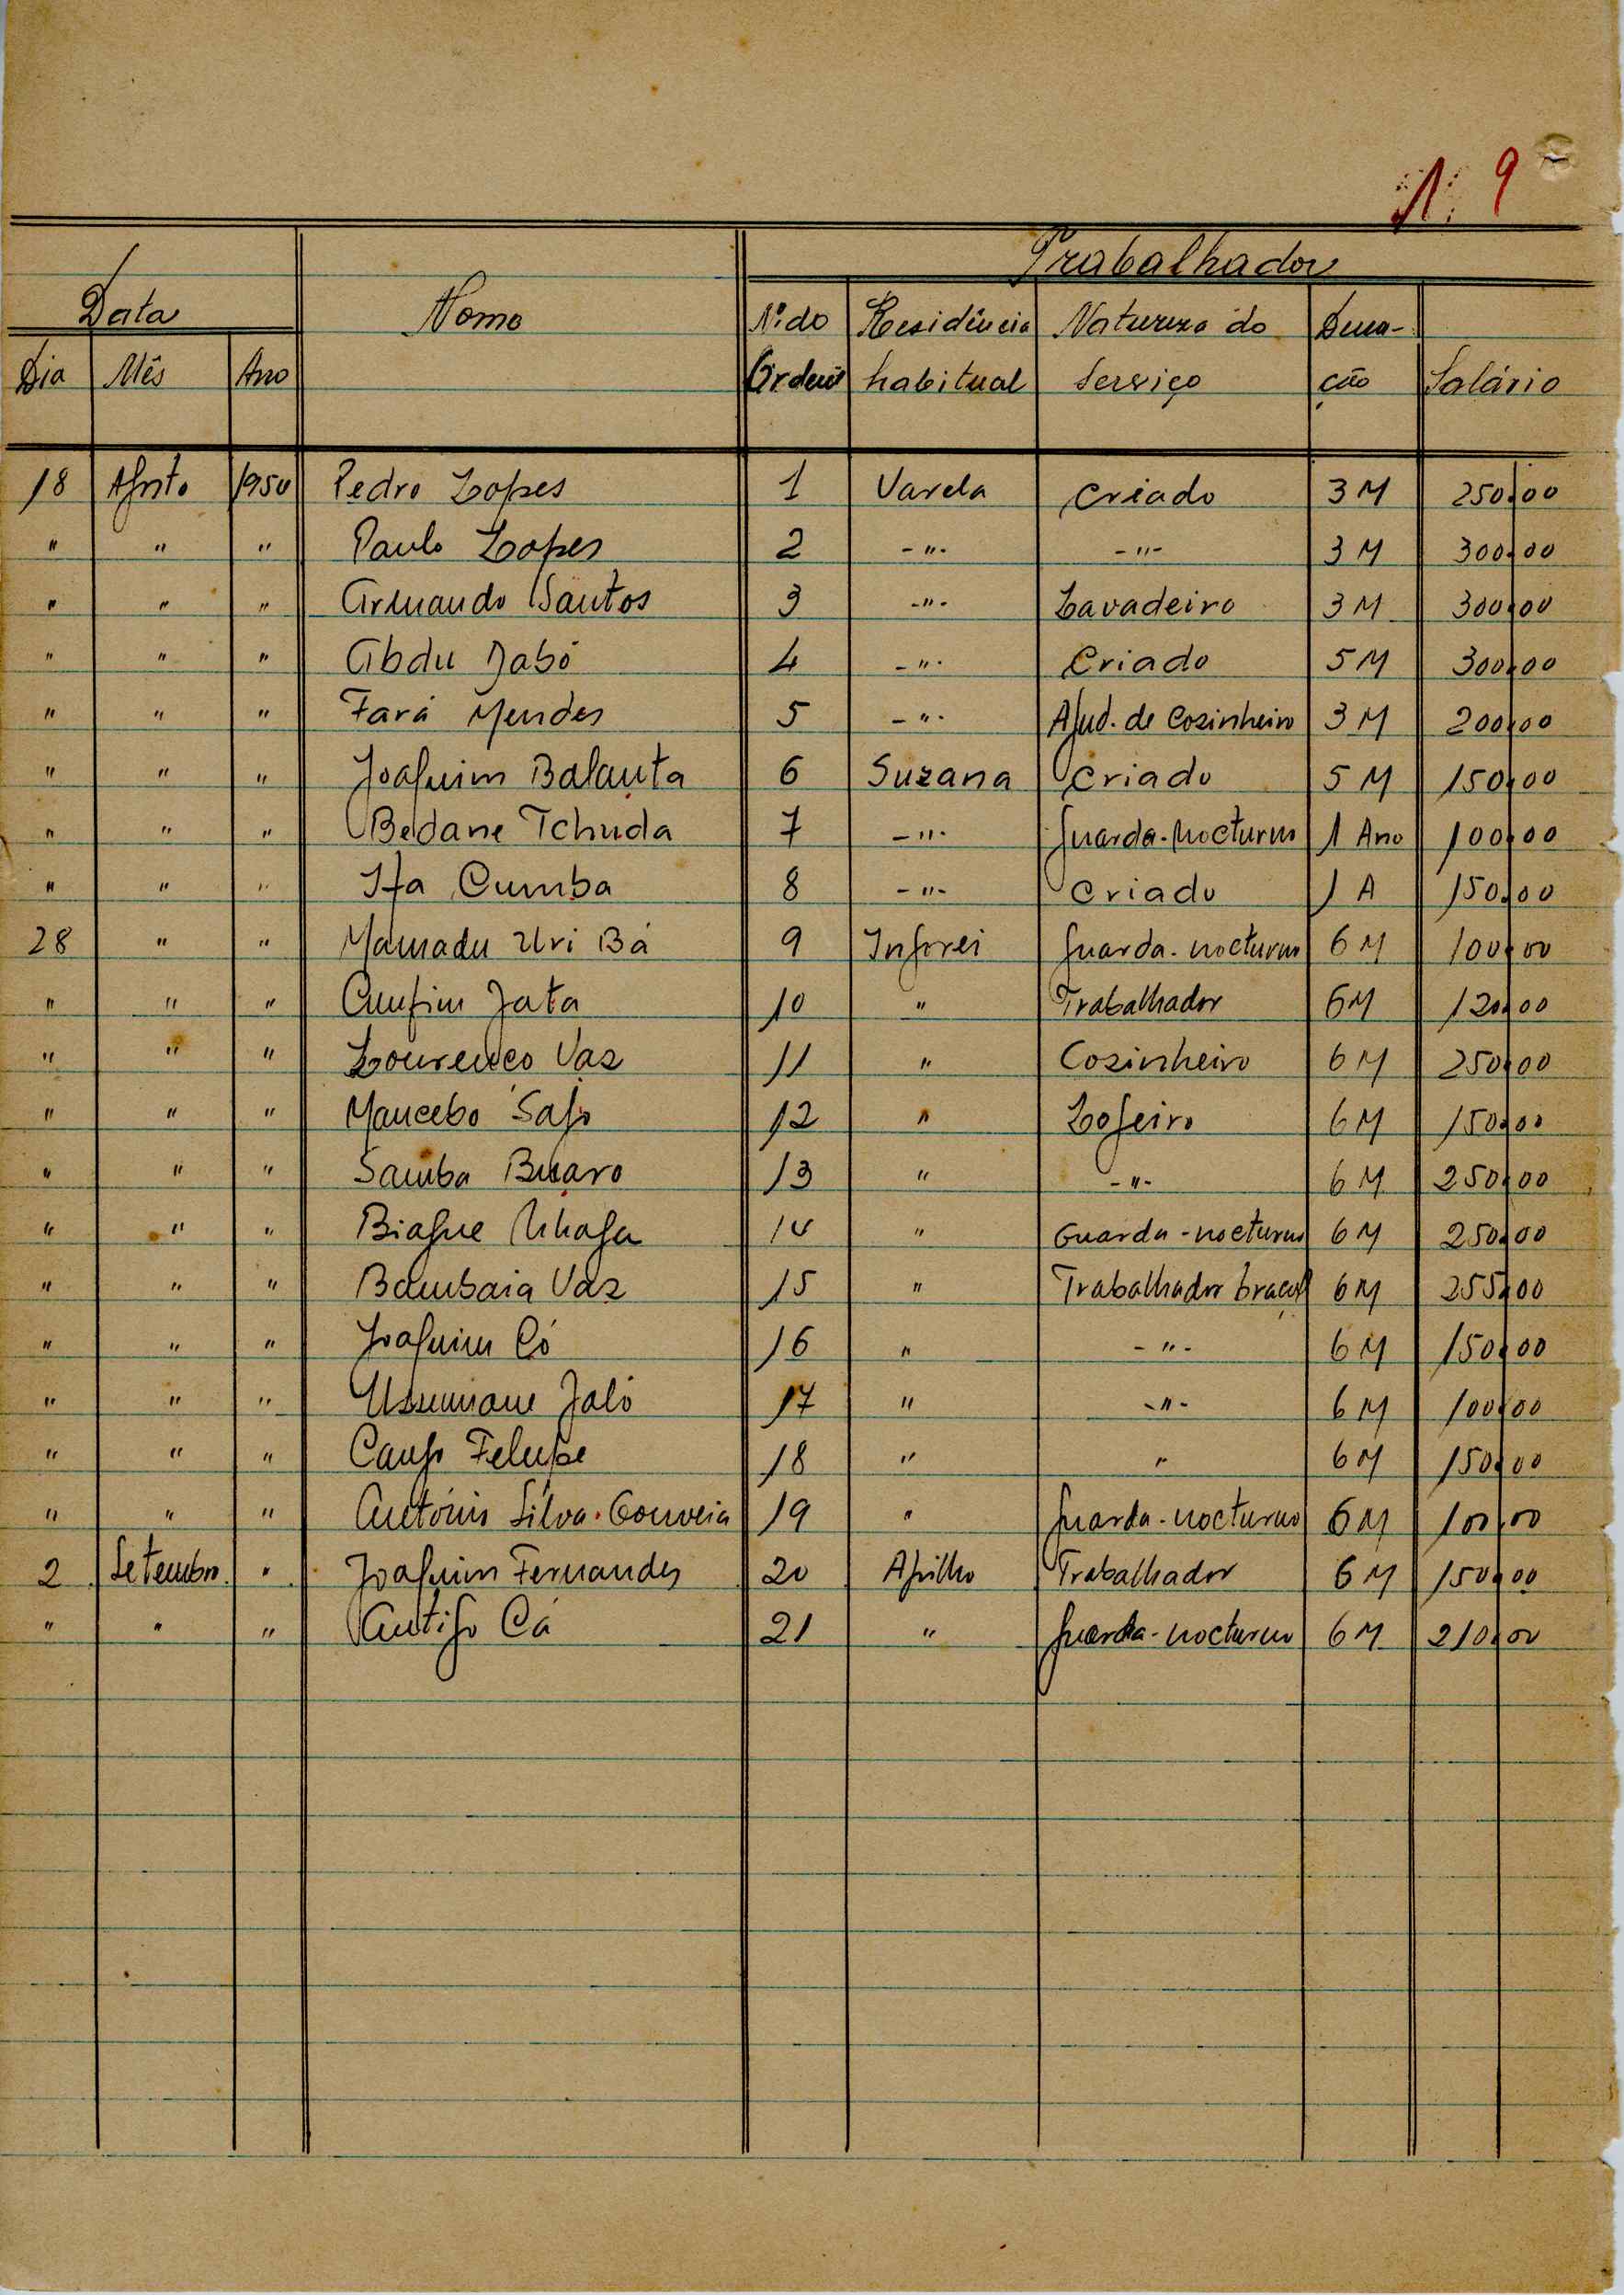 N. 9
Trabalhador
Data Nome Nº. de Residência Natureza do Dura-
Dia Mês Ano Ordem habitual Serviço ção Salário
18 Agosto 1950 Pedro Lopes 1 Varela Criado 3 M 250,00
" " " Paulo Lopes 2 -"- -"- 3 M 300,00
" " " Armando Santos 3 -"- Lavadeiro 3 M 300,00
" " " Abdu Dabó 4 -"- Criado 5 M 300,00
" " " Fará Mendes 5 -"- Ajud. de Cozinheiro 3 M 200,00
" " " Joaquim Balanta 6 Suzana Criado 5 M 150,00
" " " Bedane Tchuda 7 -"- Guarda-Nocturno 1 Ano 100,00
" " " Cumba 8 -"- Criado 1 A 150,00
28 " " Mamadu Uri Bá 9 Ingorei Guarda-nocturno 6 M 100,00
" " " Jata 10 " Trabalhador 6M 120,00
" " " Lourenço Vaz 11 " Cozinheiro 6 M 250,00
" " " Mancebo 12 " Lojeiro 6 M 150,00
" " " Samba 13 " -"- 6 M 250,00
" " " Biague Nhaga 14 " Guarda-nocturno 6 M 250,00
" " " Bambaia Vaz 15 " Trabalhador braçal 6 M 255,00
" " " Joaquim Có 16 " -"- 6 M 150,00
" " " Ussumane Jaló 17 " -"- 6 M 100,00
" " " Felupe 18 " " 6 M 150,00
" " " António Silva Gouveia 19 " Guarda-nocturno 6 M 100,00
2 Setembro " Joaquim Fernandes 20 Apilho Trabalhador 6 M 150,00
" " " Antigo Cá 21 " Guarda-nocturno 6 M 210,00